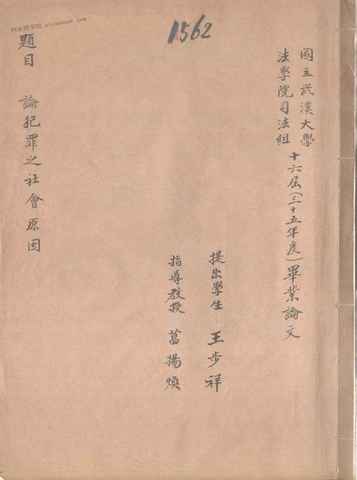 國立武漢大學
法學院司法組
十六屆(三十五年度)畢業論文
提出學生 王步祥
指導教授 葛揚煥
題目 論犯罪之社會原因
1562